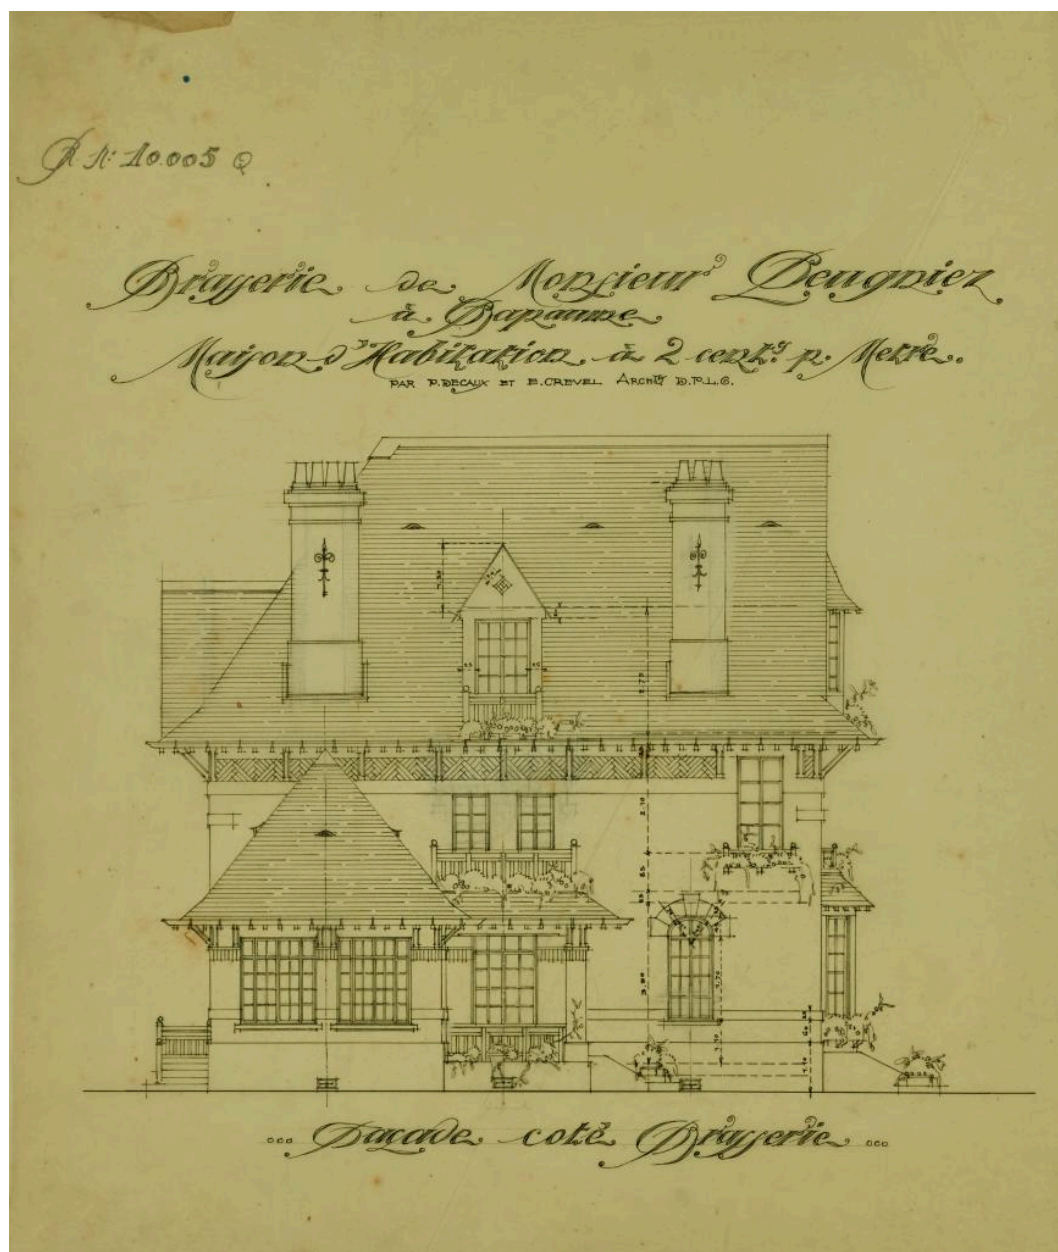 R. N: 10.005 Q
Brasserie de Monsieur Peugniez
à Bapaume
Maison d'Habitation à 2 cent.s p. Metre.
PAR P. DECAUX ET E. CREVEL ARCHTS D.P.L.G.
... Façade coté Brasserie ...